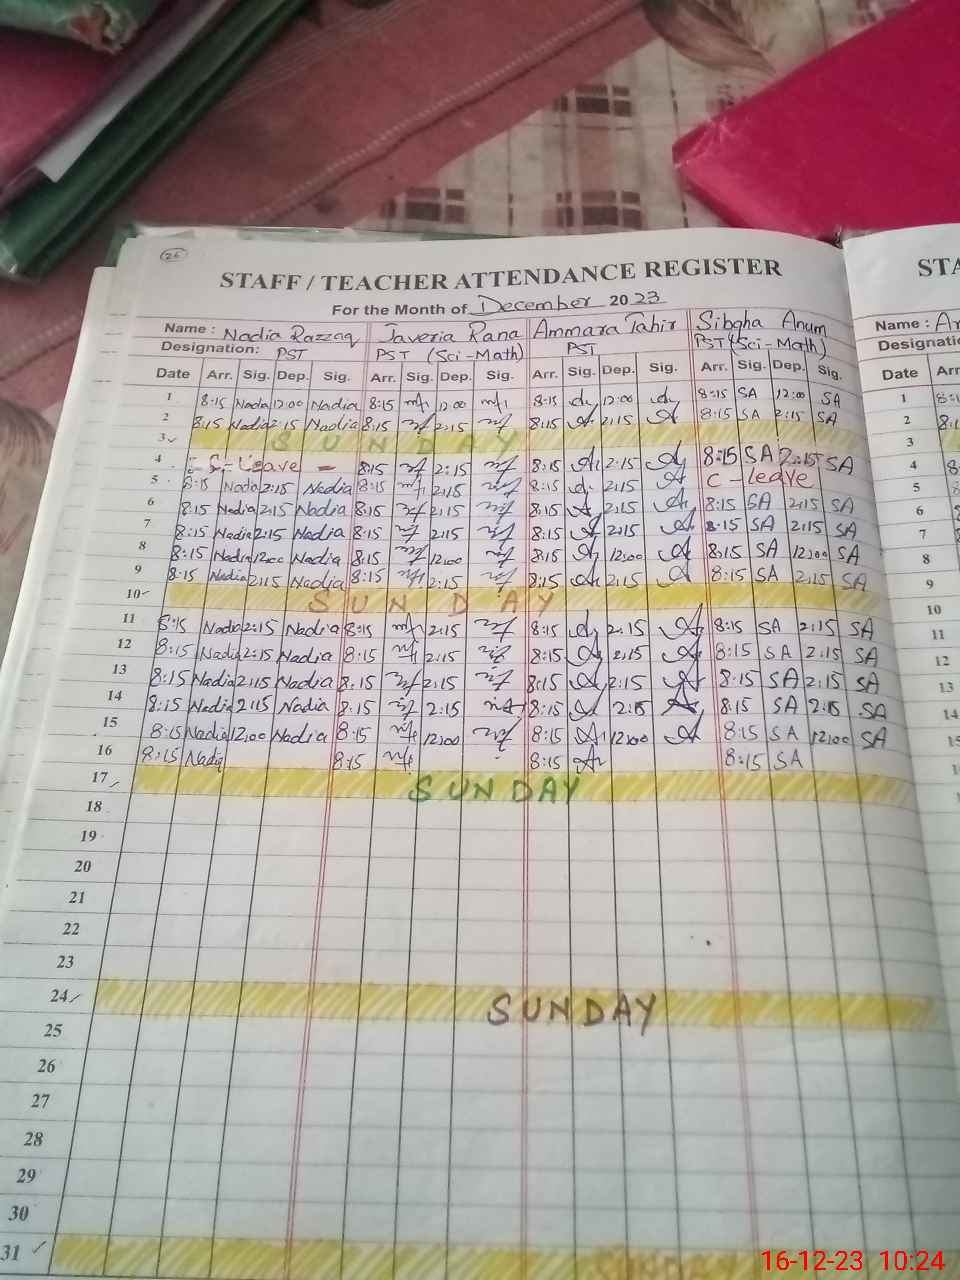 26
STAFF / TEACHER ATTENDANCE REGISTER
STA
For the Month of December 2023
Name : Nadia Razzaq Javeria Rana Ammara Tahir Sibgha Anum
Name :
Designation: PST PST (Sci-Math) PST PST (Sci-Math)
Date Arr. Sig. Dep. Sig. Arr. Sig. Dep. Sig. Arr. Sig. Dep. Sig. Arr. Sig. Dep. Sig.
Date Arr
1 8:15 Nadia 12:00 Nadia 8:15 12:00 8:15 12:00 8:15 SA 12:00 SA
2 8:15 Nadia 2:15 Nadia 8:15 2:15 8:15 2:15 8:15 SA 2:15 SA
3 SUNDAY
4 C-Leave 8:15 2:15 8:15 2:15 8:15 SA 2:15 SA
5 8:15 Nadia 2:15 Nadia 8:15 2:15 8:15 2:15 C-leave
6 8:15 Nadia 2:15 Nadia 8:15 2:15 8:15 2:15 8:15 SA 2:15 SA
7 8:15 Nadia 2:15 Nadia 8:15 2:15 8:15 2:15 8:15 SA 2:15 SA
8 8:15 Nadia 12:00 Nadia 8:15 12:00 8:15 12:00 8:15 SA 12:00 SA
9 8:15 Nadia 2:15 Nadia 8:15 2:15 8:15 2:15 8:15 SA 2:15 SA
10 SUNDAY
11 8:15 Nadia 2:15 Nadia 8:15 2:15 8:15 2:15 8:15 SA 2:15 SA
12 8:15 Nadia 2:15 Nadia 8:15 2:15 8:15 2:15 8:15 SA 2:15 SA
13 8:15 Nadia 2:15 Nadia 8:15 2:15 8:15 2:15 8:15 SA 2:15 SA
14 8:15 Nadia 2:15 Nadia 8:15 2:15 8:15 2:15 8:15 SA 2:15 SA
15 8:15 Nadia 12:00 Nadia 8:15 12:00 8:15 12:00 8:15 SA 12:00 SA
16 8:15 Nadia 8:15 8:15 8:15 SA
17 SUNDAY
18
19
20
21
22
23
24 SUNDAY
25
26
27
28
29
30
31 SUNDAY
16-12-23 10:24